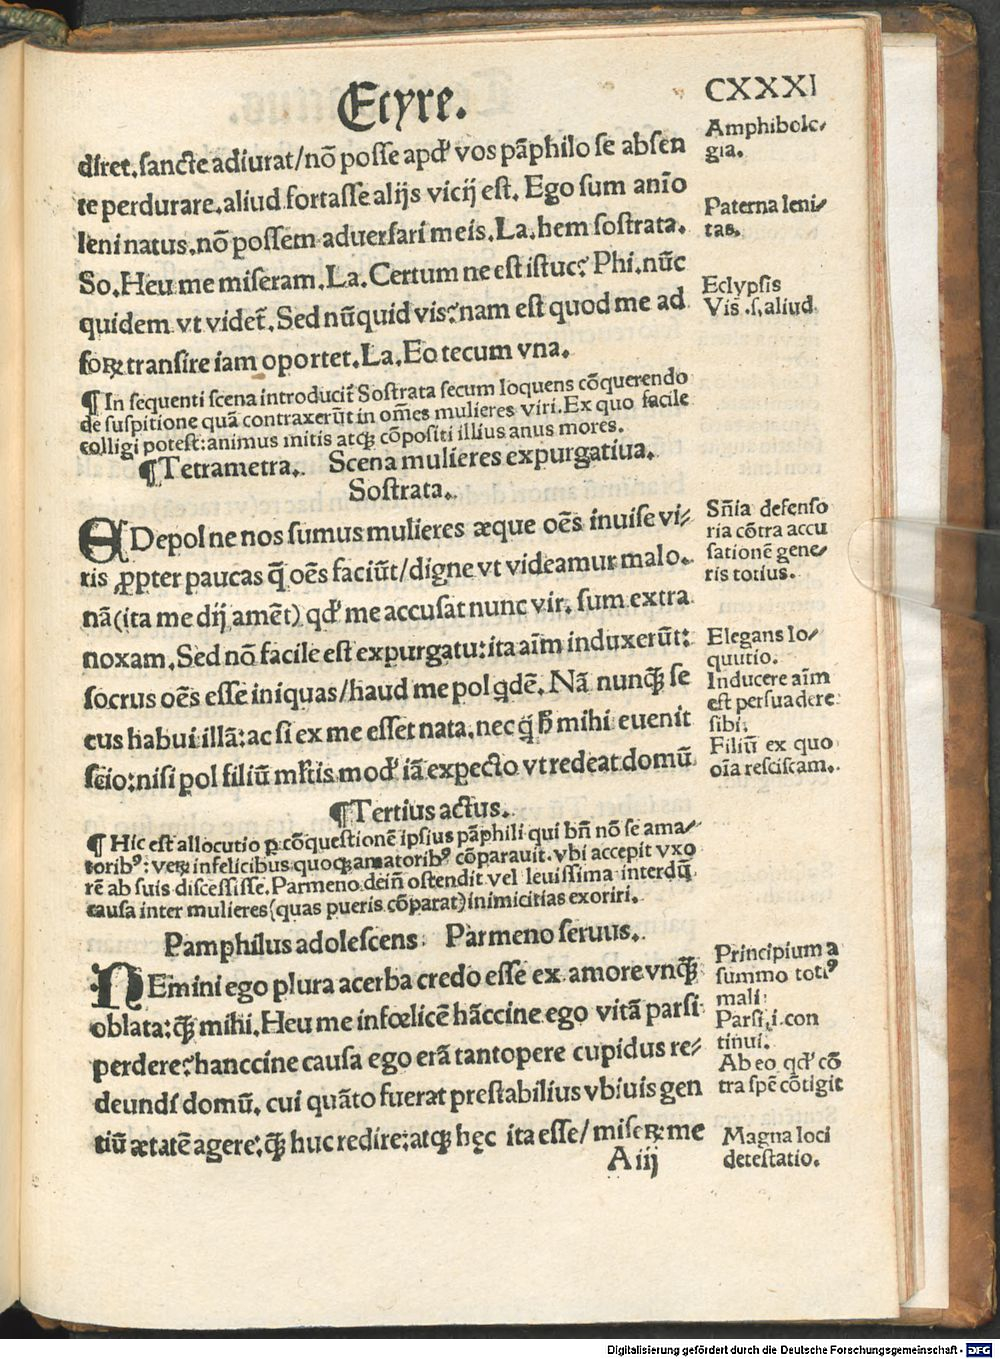 Ecyre.
CXXXI
diret. sancte adiurat/nō posse apđ vos pāphilo se absen
te perdurare. aliud fortasse alijs vicij est. Ego sum anīo
leni natus. nō possem aduersari meis. La. hem sostrata.
So. Heu me miseram. La. Certum ne est istuc? Phi. nūc
quidem vt videt̄. Sed nūquid vis? nam est quod me ad
foꝝ transire iam oportet. La. Eo tecum vna.
¶ In sequenti scena introducit̄ Sostrata secum loquens cōquerendo
de suspitione quā contraxerūt in om̄es mulieres viri. Ex quo facile
colligi potest: animus mitis atqꝫ cōpositi illius anus mores.
¶ Tetrametra. Scena mulieres expurgatiua.
Sostrata.
EDepol ne nos sumus mulieres æque oēs inuise vi-
ris ꝓpter paucas q̄ oēs faciūt/digne vt videamur malo.
nā (ita me dij amēt) qđ me accusat nunc vir. sum extra
noxam. Sed nō facile est expurgatu: ita aīm induxerūt:
socrus oēs esse iniquas/haud me pol qdē. Nā nunqꝫ se
cus habui illā: ac si ex me esset nata. nec q̄ h̄ mihi euenit
scio: nisi pol filiū ml̄tis mođ iā expecto vt redeat domū
¶ Tertius actus.
¶ Hic est allocutio ꝑ cōquestionē ipsius pāphili qui bn̄ nō se ama-
toribꝰ: veꝝ infelicibus quoqꝫ amatoribꝰ cōparauit. vbi accepit vxo
rē ab suis discessisse. Parmeno dein̄ ostendit vel leuissima interdū
causa inter mulieres (quas pueris cōparat) inimicitias exoriri.
Pamphilus adolescens. Parmeno seruus.
NEmini ego plura acerba credo esse ex amore vnqꝫ
oblata: qꝫ mihi. Heu me infœlicē hāccine ego vitā parsi
perdere? hanccine causa ego erā tantopere cupidus re-
deundi domū. cui quāto fuerat prestabilius vbiuis gen
tiū ætatē agere: qꝫ huc redire: atqꝫ hęc ita esse/miseꝝ me
A iij
Amphibolo-
gia.
Paterna leni-
tas.
Eclypsis
Vis .s. aliud.
Sn̄ia defenso
ria cōtra accu
sationē gene-
ris totius.
Elegans lo-
quutio.
Inducere aīm
est persuadere
sibi.
Filiū ex quo
oīa resciscam.
Principium a
summo totiꝰ
mali.
Parsi .i. con
tinui.
Ab eo qđ cō
tra spē cōtigit
Magna loci
detestatio.
Digitalisierung gefördert durch die Deutsche Forschungsgemeinschaft - DFG